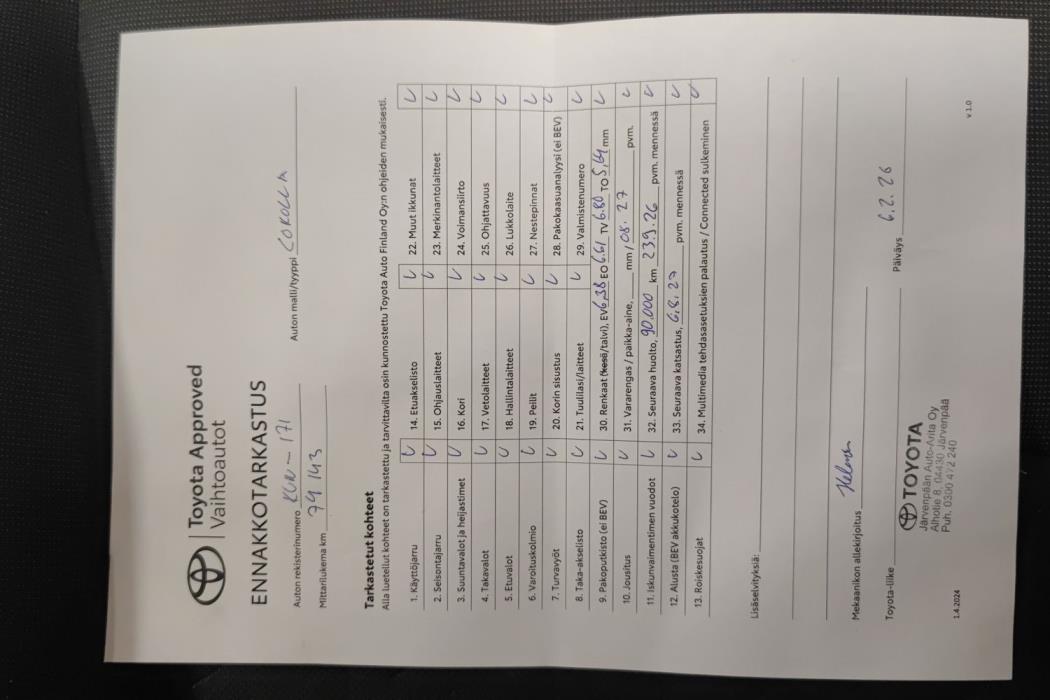 Toyota Approved
Vaihtoautot
ENNAKKOTARKASTUS
Auton rekisterinumero KUN-171 Auton malli/tyyppi COROLLA
Mittarilukema km 79143
Tarkastetut kohteet
Alla luetellut kohteet on tarkastettu ja tarvittavilta osin kunnostettu Toyota Auto Finland Oy:n ohjeiden mukaisesti.
1. Käyttöjarru ✓ 14. Etuakselisto ✓ 22. Muut ikkunat ✓
2. Seisontajarru ✓ 15. Ohjauslaitteet ✓ 23. Merkinantolaitteet ✓
3. Suuntavalot ja heijastimet ✓ 16. Kori ✓ 24. Voimansiirto ✓
4. Takavalot ✓ 17. Vetolaitteet ✓ 25. Ohjattavuus ✓
5. Etuvalot ✓ 18. Hallintalaitteet ✓ 26. Lukkolaite ✓
6. Varoituskolmio ✓ 19. Peilit ✓ 27. Nestepinnat ✓
7. Turvavyöt ✓ 20. Korin sisustus ✓ 28. Pakokaasuanalyysi (ei BEV) ✓
8. Taka-akselisto ✓ 21. Tuulilasi/laitteet ✓ 29. Valmistenumero ✓
9. Pakoputkisto (ei BEV) ✓ 30. Renkaat (kesä/talvi), EV 6,38 EO 6.61 TV 6.80 TO 5,64 mm ✓
10. Jousitus ✓ 31. Vararengas / paikka-aine, mm / 08.27 pvm. ✓
11. Iskunvaimentimien vuodot ✓ 32. Seuraava huolto, 90.000 km 23.9.26 pvm. mennessä ✓
12. Alusta (BEV akkukotelo) ✓ 33. Seuraava katsastus, 6.8.27 pvm. mennessä ✓
13. Roiskesuojat ✓ 34. Multimedia tehdasasetuksien palautus / Connected sulkeminen ✓
Lisäselvityksiä:
Mekaanikon allekirjoitus
Toyota-liike Päiväys 6.2.26
TOYOTA
Järvenpään Auto-Arita Oy
Alhotie 8, 04430 Järvenpää
Puh. 0300 472 240
1.4.2024 v 1.0